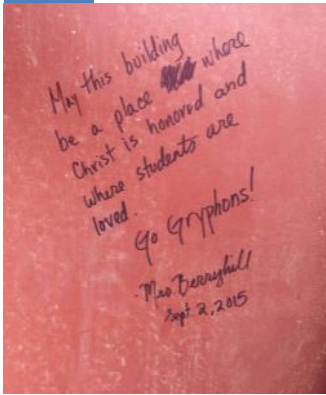 May this building
be a place where
Christ is honored and
where students are
loved.
Go Gryphons!
Mrs. Berryhill
Sept. 2, 2015